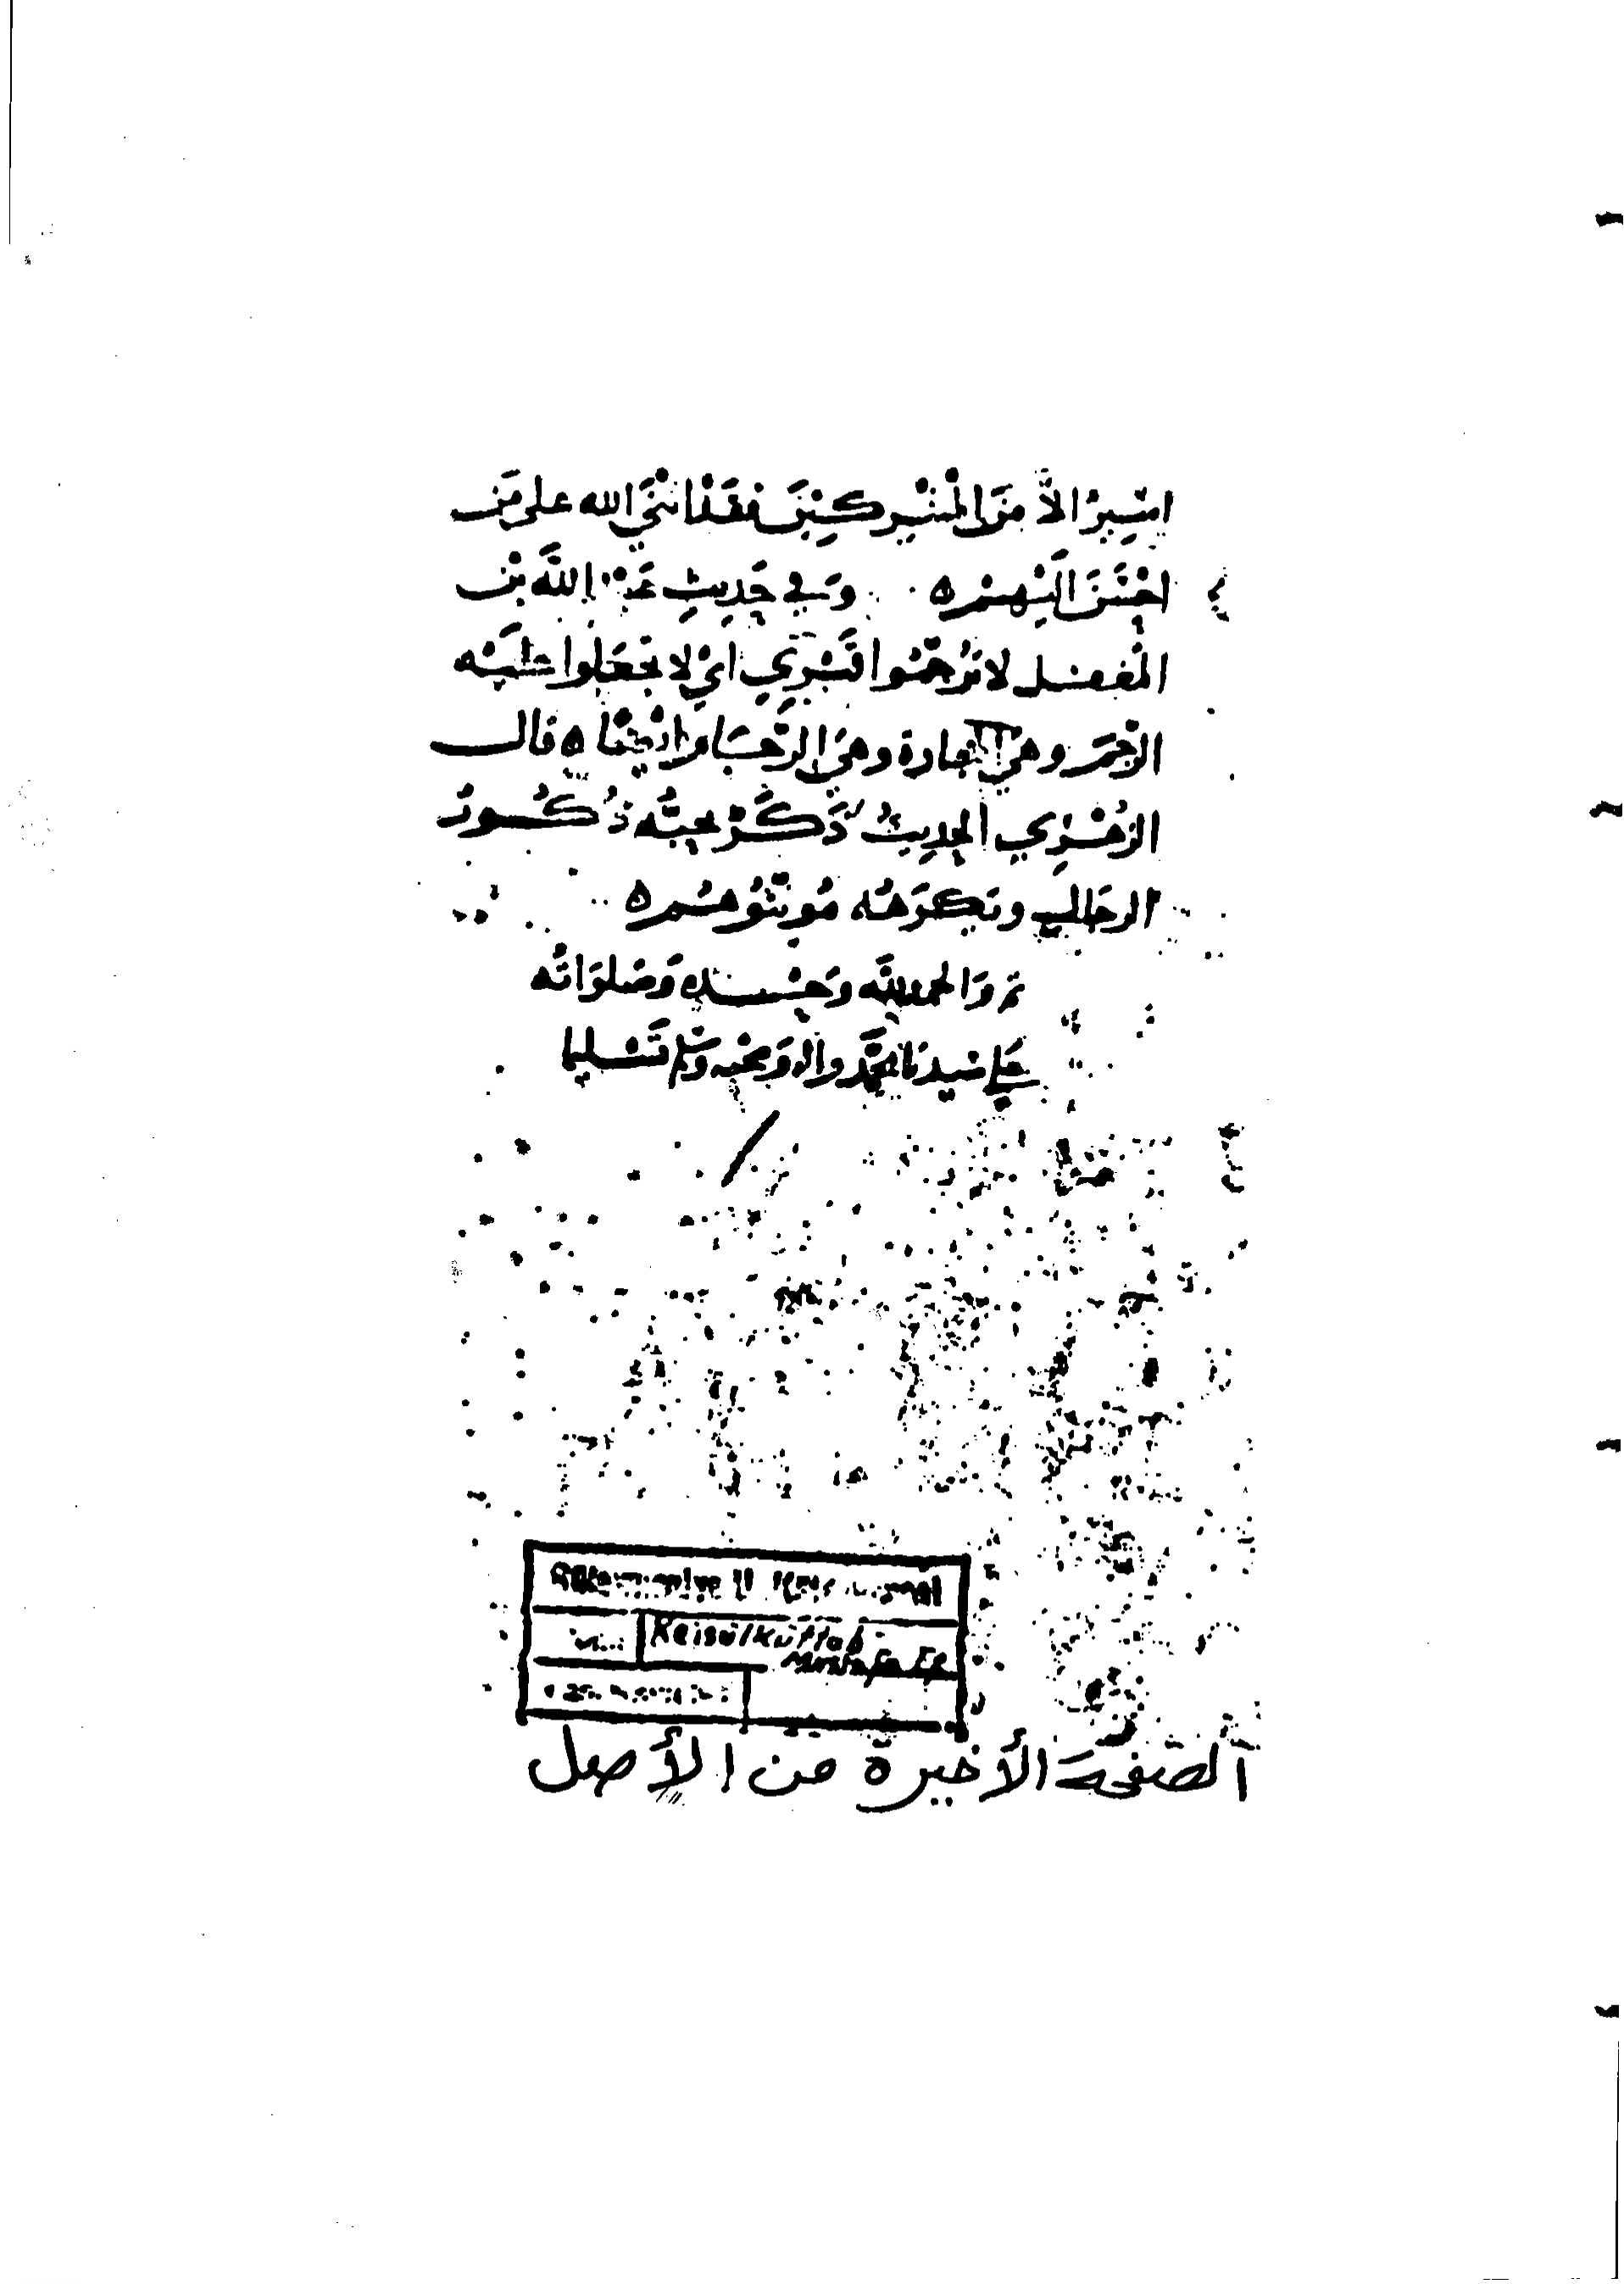 اسِيرُ الاَّ مِنَ المُشْرِكِينَ فَقَدْ اثْنَى الله على مَن
احْسَنَ الَيْهِمْ ه وَفي حَدِيثِ عَبْدِ اللَّه بْن
المُغفل لا تُرَجِّمُوا قَبْرِي ايْ لا تجْعَلوا عَلَيْه
الرُّجَمَ وهيَ الحجارة وهيَ الرِّجَامُ ايْضًا ه قال
الزُهْرِي الحدِيثُ ذَكَرٌ يحِبُّه ذُكُورُ
الرجَالِ ويَكرَهُه مُونَّثُوهُمْ ه
تم وَالحمد للَّه وَحْده وَصَلوَاتُه
عَلى سَيدنَا محَمَّد واله وَصَحْبه وَسَلم تَسْليما
Süleymaniye U Kütüphanesi
Reisülküttab
Mustafa Ef
الصفحة الأخيرة من الأصل